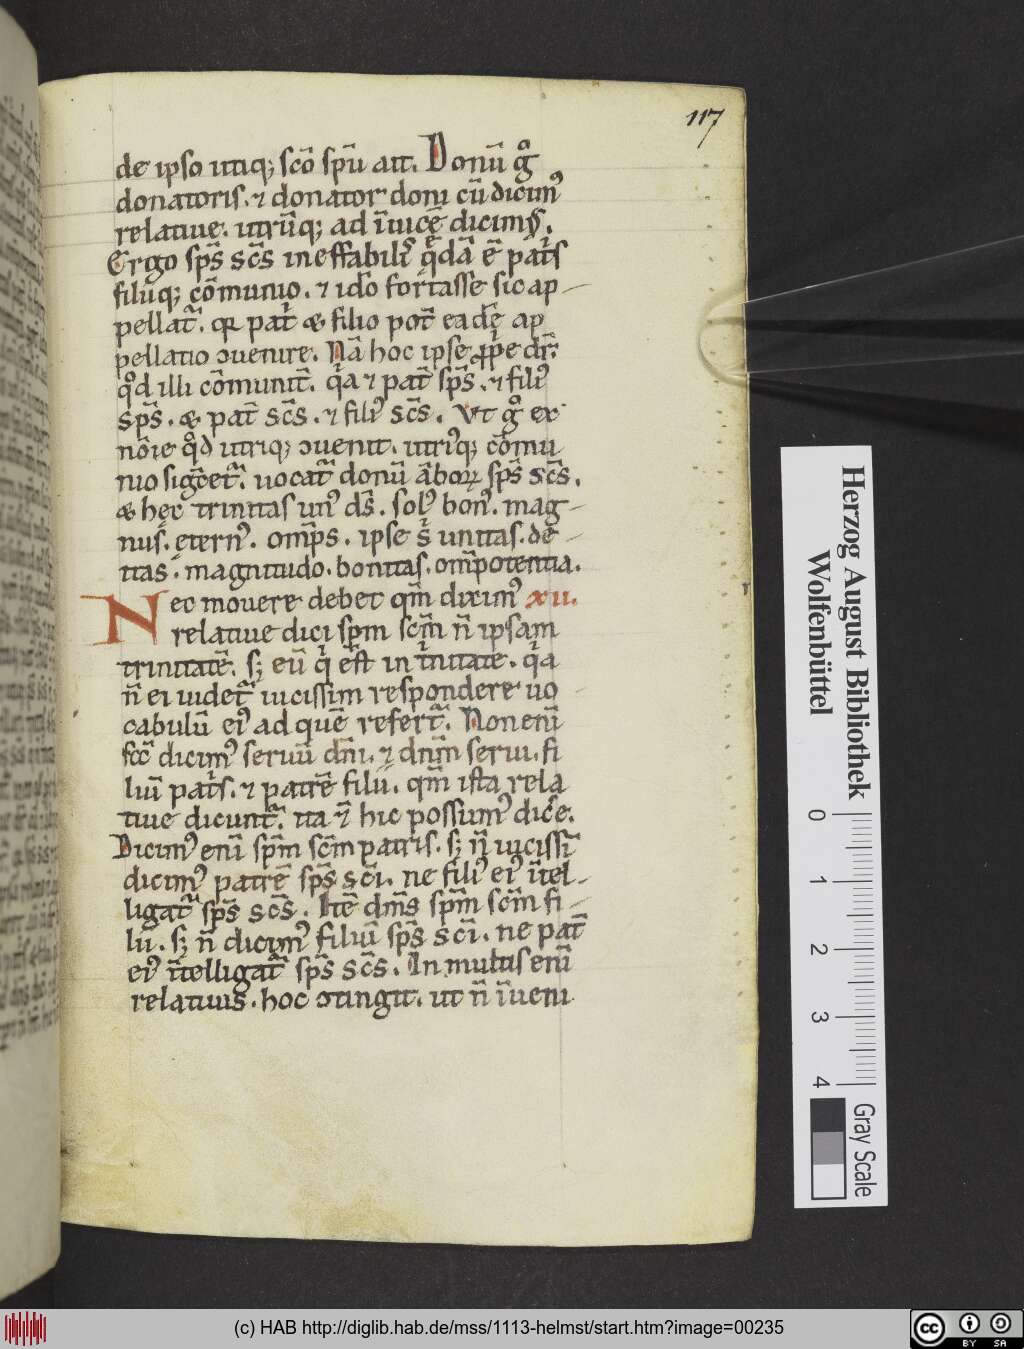 117
de ipso utiq; scō spū ait. Donū gͦ
donatoris. ⁊ donator doni cū dicimꝰ
relatiue. utrūq; ad īuicē dicimꝰ.
Ergo sp̄s sc̄s ineffabilis q̄dā ē pat̄s
filiiq; cōmunio. ⁊ iđo fortasse sic ap-
pellat᷑. qꝛ pat̄ı & filio pot̄ eadē ap
pellatio ↄuenire. Nā hoc ipse ꝓp̄e dr̄.
qͦd illi cōmunit̄. qͥa ⁊ pat̄ sp̄s. ⁊ filiꝰ
sp̄s. & pat̄ sc̄s. ⁊ filiꝰ sc̄s. Vt gͦ ex
nōıe qͦd utriq; ↄuenit. utriꝰq; cōmu
nio sigc̄et᷑. uocat᷑ donū āboꝝ sp̄s sc̄s.
& hec trinitas unꝰ ds̄. solꝰ bonꝰ. mag-
nus. eternꝰ. omīps. ipse sͥ unitas. de-
itas. magnitudo. bonitas. omīpotentia.
Nec mouere debet qm̄ diximꝰ xii.
relatiue dici spm̄ scm̄ n̄ ipsam
trinitatē. s; eū qͥ ēst in tͥnitate. qͥa
n̄ ei uidet᷑ uicissim respondere uo
cabulū eiꝰ ad quē refert᷑. Non enī
sīc dicimꝰ seruū dn̄i. ⁊ dnm̄ serui. fi
liū pat̄s. ⁊ patrē filii. qm̄ ista rela
tiue dicunt᷑. ita ⁊̄ hic possumꝰ dic̄e.
Dicimꝰ enī spm̄ scm̄ patris. s; n̄ uicissī
dicimꝰ patrē sp̄s sc̄i. ne filiꝰ eiꝰ ītel-
ligat᷑ sp̄s sc̄s. Itē dm̄s spm̄ scm̄ fi-
lii. s; n̄ dicimꝰ filiū sp̄s sc̄i. ne pat̄
eiꝰ ītelligat᷑ sp̄s sc̄s. In multis enī
relatiuis. hoc ↄtingit. ut n̄ īueni
Herzog August Bibliothek
Wolfenbüttel
0 1 2 3 4
Gray Scale
(c) HAB http://diglib.hab.de/mss/1113-helmst/start.htm?image=00235
cc BY SA